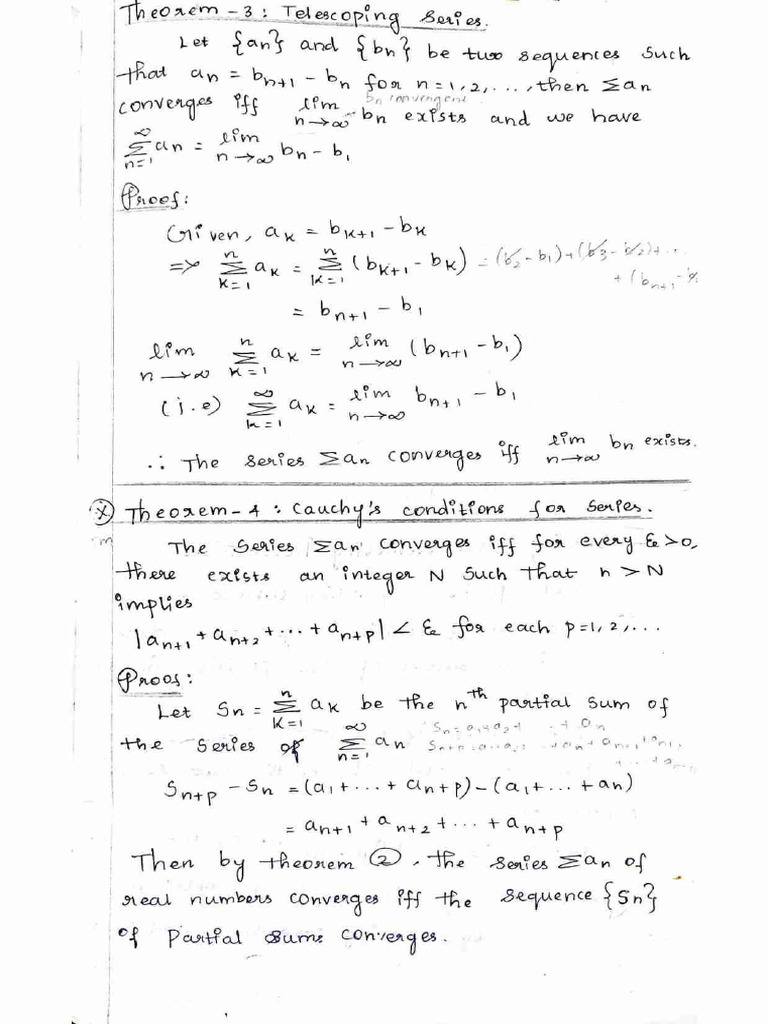 Theorem - 3 : Telescoping Series.
Let {an} and {bn} be two sequences such
that an = bn+1 - bn for n=1,2,..., then Σan
bn convergent
converges iff lim n→∞ bn exists and we have
∞Σn=1 an = lim n→∞ bn - b1
Proof:
Given, ak = bk+1 - bk
=> nΣk=1 ak = nΣk=1 (bk+1 - bk) = (b2 - b1) + (b3 - b2) + ...
+ (bn+1 - b
= bn+1 - b1
lim n→∞ nΣk=1 ak = lim n→∞ (bn+1 - b1)
(i.e) ∞Σk=1 ak = lim n→∞ bn+1 - b1
∴ The series Σan converges iff lim n→∞ bn exists.
Theorem - 4 : Cauchy's conditions for series.
The series Σan converges iff for every ε>0,
there exists an integer N such that n > N
implies
|an+1 + an+2 + ... + an+p| < ε for each p=1,2,...
Proof:
Let Sn = nΣk=1 ak be the nth partial sum of
Sn = a1+a2+ ... + an
the series of ∞Σn=1 an
Sn+p - Sn = (a1 + ... + an+p) - (a1 + ... + an)
= an+1 + an+2 + ... + an+p
Then by theorem 2, the series Σan of
real numbers converges iff the sequence {Sn}
of partial sums converges.